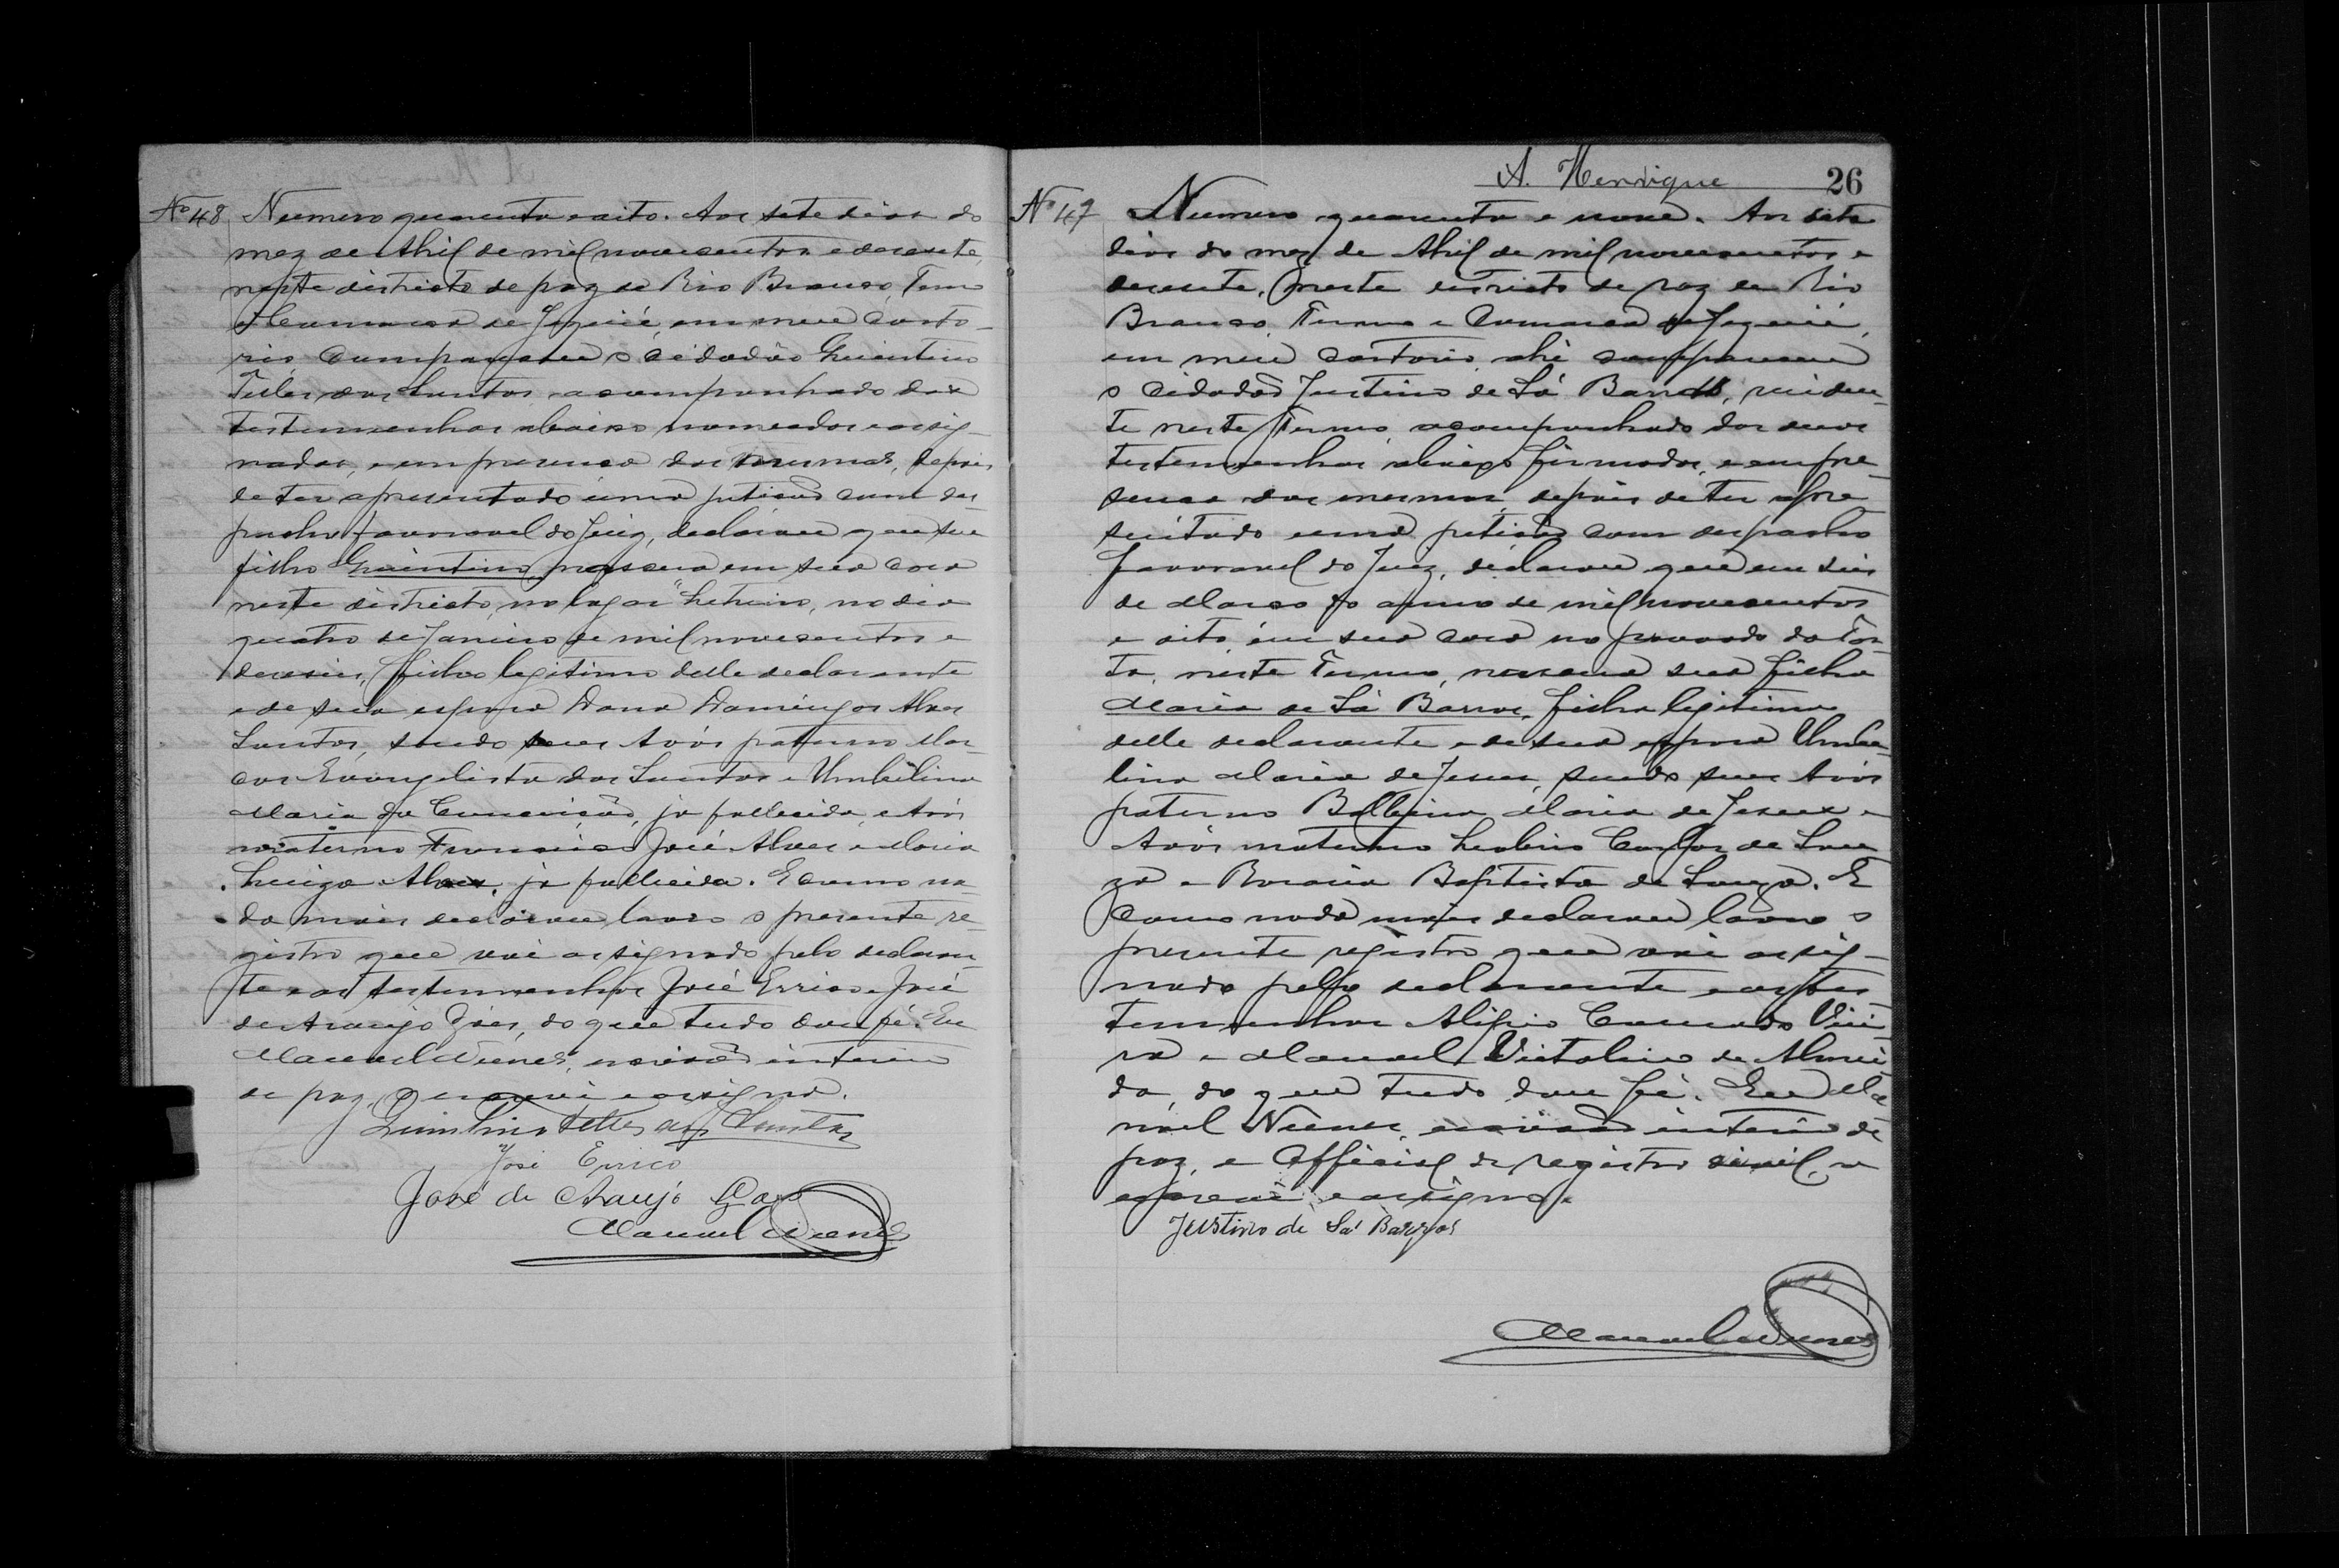 Nº 48 Numero quarenta e oito. Aos sete dias do
mez de Abril de mil novecentos e desesete,
neste districto de paz de Rio Branco, Termo
e Comarca de Jequié, em meu carto-
rio, compareceu o cidadão Quintino
Telles dos Santos, acompanhado das
testemunhas abaixo nomeadas e assig-
nadas, e em presença das mesmas, depois
de ter apresentado uma petição com des-
pacho favoravel do Juiz, declarou que seu
filho Quintino nasceu em sua casa
neste districto, no lugar "Letreiro, no dia
quatro de Janeiro de mil novecentos e
deseseis, filho legitimo delle declarante
e de sua esposa Dona Domingas Alves
Santos, sendo seus Avós paterno Mar-
cos Evangelista dos Santos e Umbelina
Maria da Conceição, já fallecida, e Avós
materno Francisco José Alves e Maria
Luiza Alves, já fallecida. E como na-
da mais declarou lavro o presente re-
gistro que vai assignado pelo declaran-
te e as testemunhas José Errico e José
de Araujo Góes, do que tudo dou fé. Eu
Manuel Nunes, escrivão interino
de paz, o escrevi e assigno.
Quintino Telles dos Santos
José Errico
José de Araujo Góes
Manuel Nunes
A. Henrique 26
Nº 49 Numero quarenta e nove. Aos sete
dias do mez de Abril de mil novecentos e
desesete, neste districto de paz de Rio
Branco, Termo e Comarca de Jequié,
em meu cartorio, ahi compareceu
o cidadão Justino de Sá Barros, residen-
te neste Termo, acompanhado das suas
testemunhas abaixo firmadas, e em pre-
sença das mesmas, depois de ter apre-
sentado uma petição com despacho
favoravel do Juiz, declarou que em seis
de Março do anno de mil novecentos
e oito, em sua casa no povoado da
neste Termo, nasceu sua filha
Maria de Sá Barros, filha legitima
delle declarante e de sua esposa Umbe-
lina Maria de Jesus, sendo seus Avós
paterno Balbina Maria de Jesus e
Avós materno Leolino Carlos de Sou-
za e Baptista de Souza. E
como nada mais declarou lavro o
presente registro que vai assig-
nado pelo declarante e as tes-
temunhas Alipio Conrado Viei-
ra e Manuel Victalino de Almei-
da, do que tudo dou fé. Eu Ma-
nuel Nunes, escrivão interino de
paz, e Official de registro civil, o
escrevi e assigno.
Justino de Sá Barros
Manuel Nunes